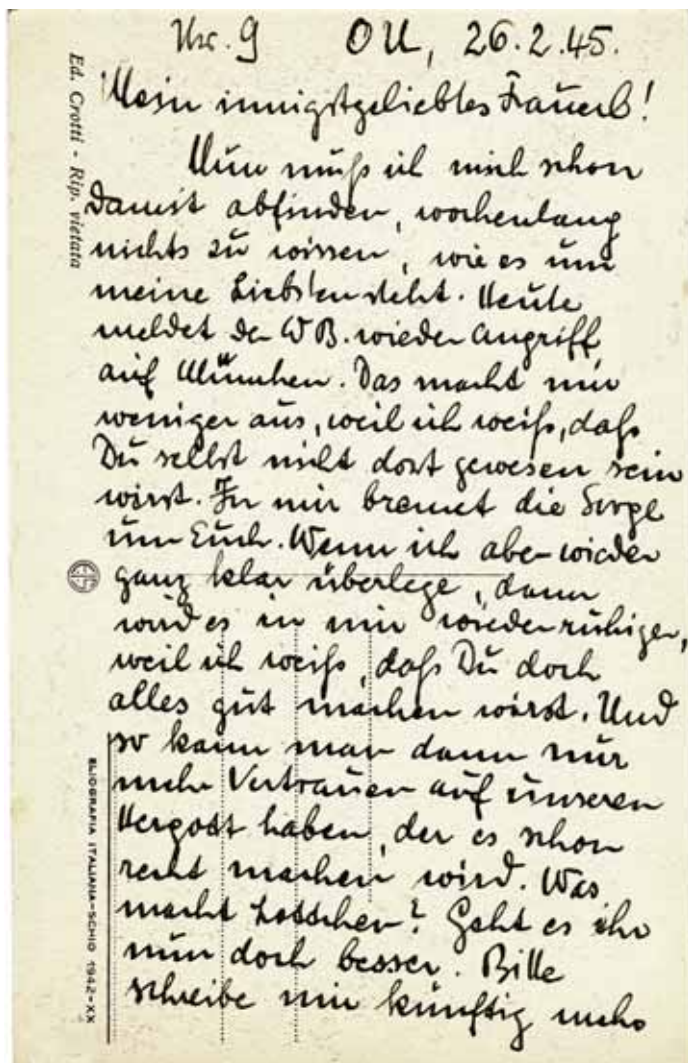 Nr. 9 OU, 26.2.45.
Mein innigstgeliebtes Frauerl!
Nun muß ich mich schon
damit abfinden, wochenlang
nichts zu wissen, wie es um
meine Liebsten steht. Heute
meldet der WB. wieder Angriff
auf München. Das macht mir
weniger aus, weil ich weiß, daß
Du selbst nicht dort gewesen sein
wirst. In mir brennt die Sorge
um Euch. Wenn ich aber wieder
ganz klar überlege, dann
wird es in mir wieder ruhiger,
weil ich weiß, daß Du doch
alles gut machen wirst. Und
so kann man dann nur
mehr Vertrauen auf unseren
Hergott haben, der es schon
recht machen wird. Was
macht Lottchen? Geht es ihr
nun doch besser. Bitte
schreibe mir künftig mehr
Ed. Crotti - Rip. vietata
ELIOGRAFIA ITALIANA-SCHIO 1942-XX